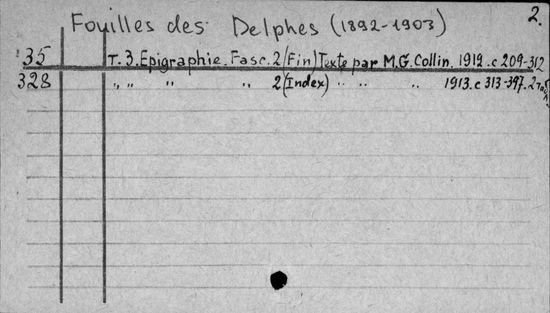 2.
Fouilles des Delphes (1892-1903)
35 T. 3. Epigraphie. Fasc. 2 (Fin) Texte par M.G. Collin. 1912. c 209-312
328 " " " " 2 (Index) " " " 1913. c 313-397. 2